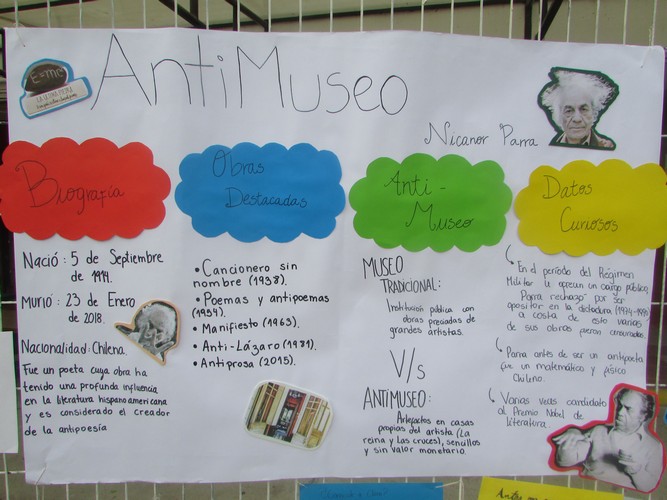 AntiMuseo
Nicanor Parra
E=mc²
Biografía
Nació: 5 de Septiembre
de 1914.
Murió: 23 de Enero
de 2018.
Nacionalidad: Chilena.
Fue un poeta cuya obra ha
tenido una profunda influencia
en la literatura hispanoamericana
y es considerado el creador
de la antipoesía
Obras
Destacadas
• Cancionero sin
nombre (1938).
• Poemas y antipoemas
(1954).
• Manifiesto (1963).
• Anti-Lázaro (1981).
• Antiprosa (2015).
Anti-
Museo
MUSEO
TRADICIONAL:
Institución pública con
obras preciadas de
grandes artistas.
V/s
ANTIMUSEO:
Artefactos en casas
propias del artista (La
reina y Las cruces), sencillos
y sin valor monetario.
Datos
Curiosos
En el período del Régimen
Militar le ofrecen un cargo público,
Parra rechazó por ser
opositor en la dictadura (1974-1990)
a costa de esto varias
de sus obras fueron censuradas.
Parra antes de ser un antipoeta
fue un matemático y físico
Chileno.
Varias veces candidato
al Premio Nobel de
Literatura.